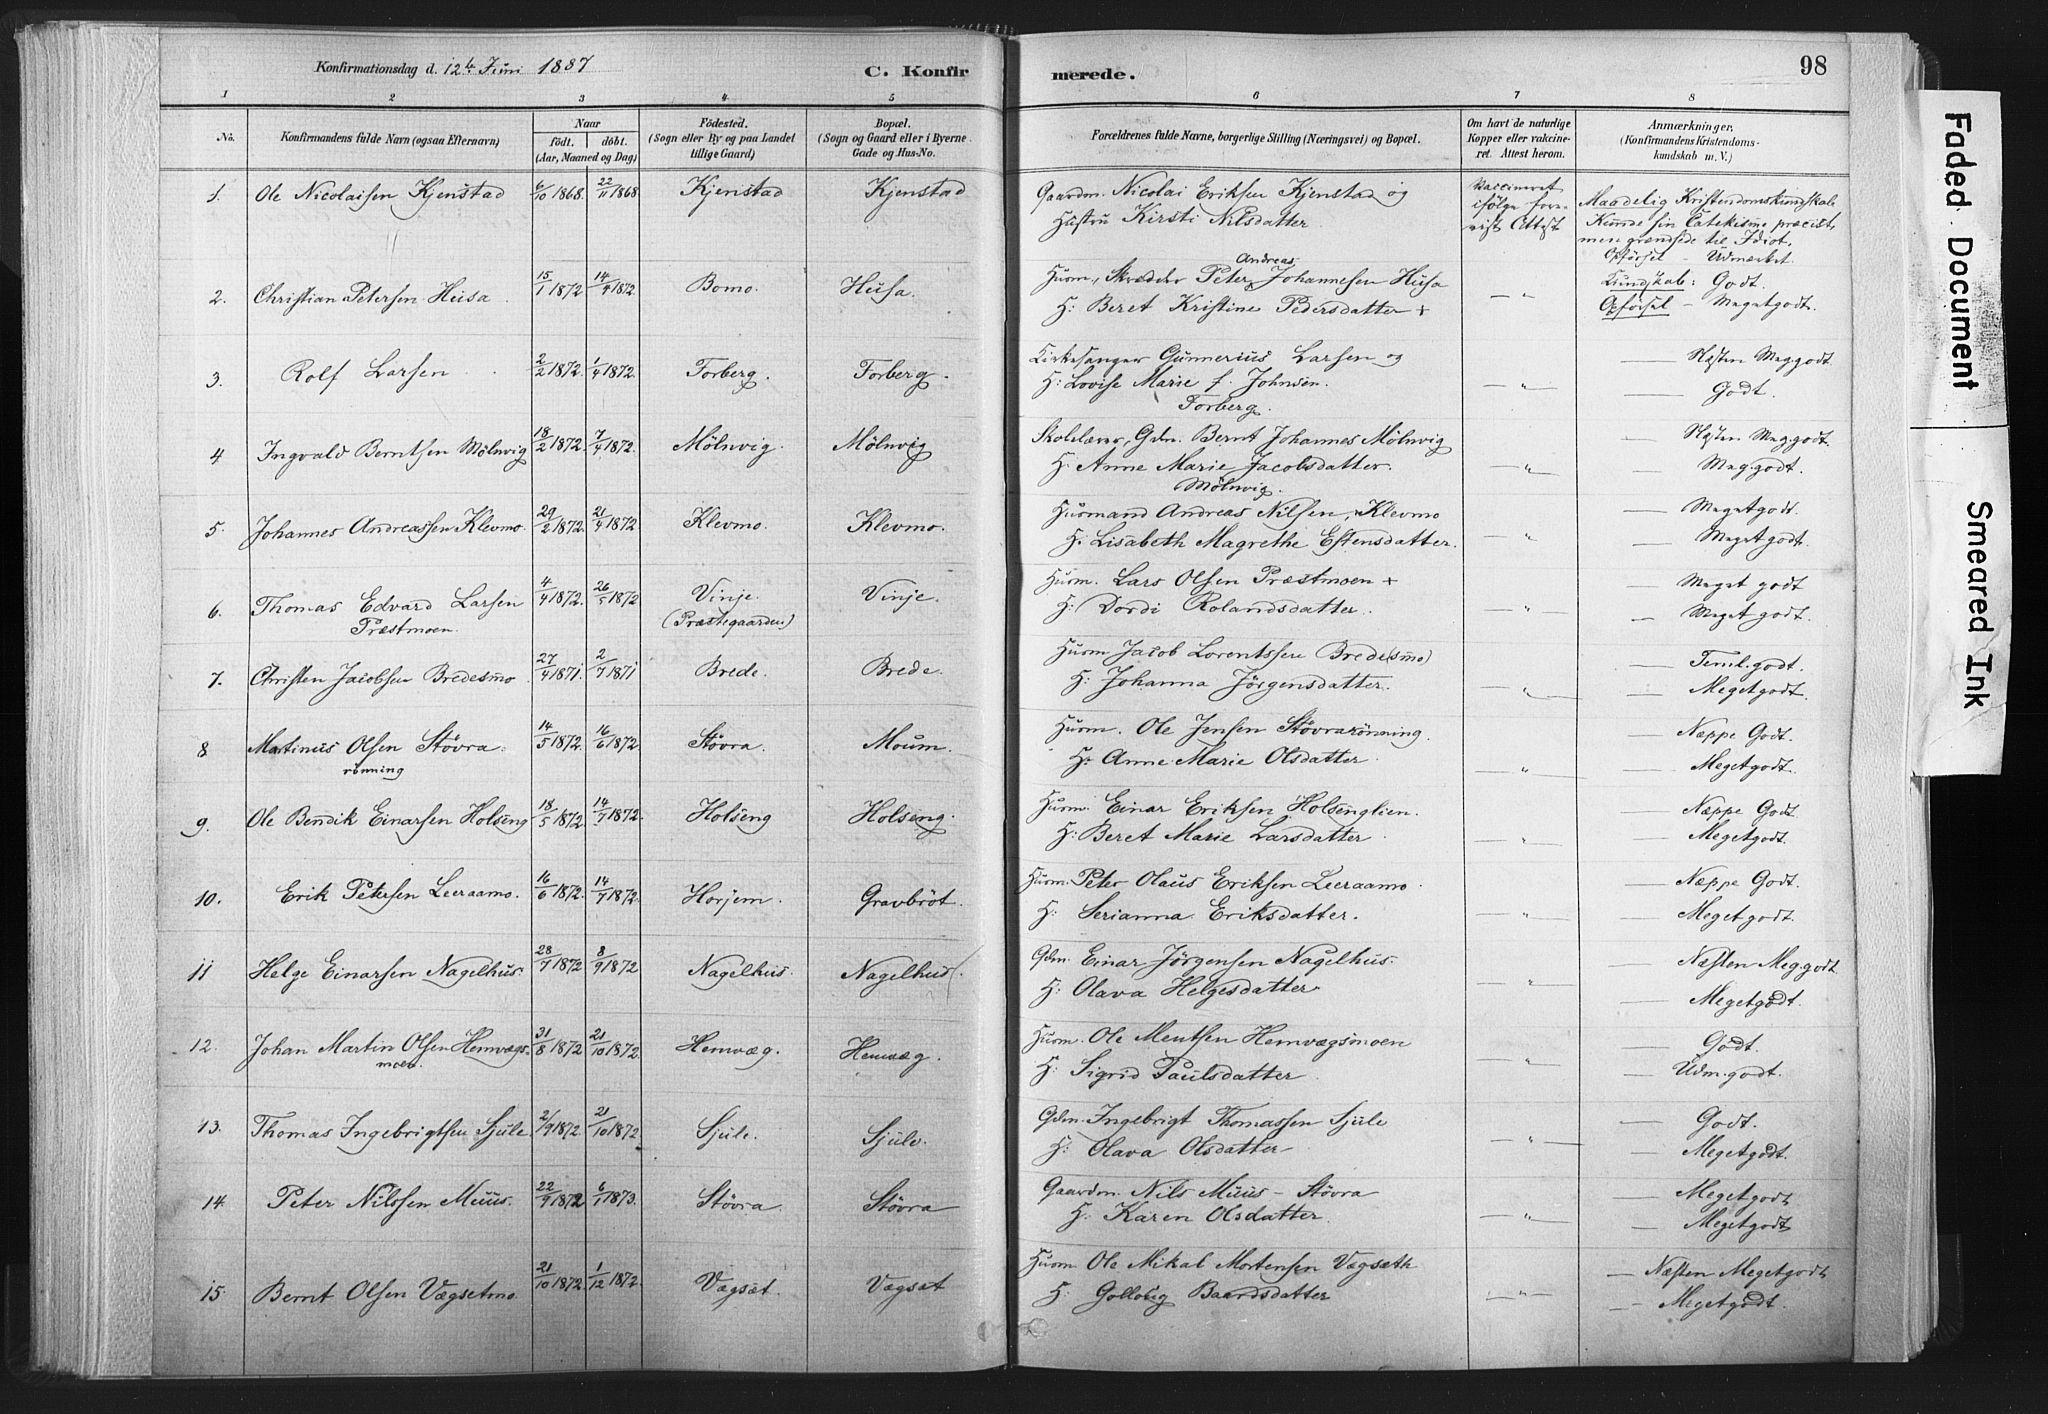 Konfirmationsdag d. 12te Juni 1887
C. Konfir
merede.
98
1 2 3 4 5 6 7 8
No.
Konfirmandens fulde Navn (ogsaa Efternavn)
Naar
født. døbt.
(Aar, Maaned og Dag)
Fødested.
(Sogn eller By og paa Landet
tillige Gaard)
Bopæl.
(Sogn og Gaard eller i Byerne
Gade og Hus-No.
Forældrenes fulde Navne, borgerlige Stilling (Næringsvei) og Bopæl.
Om havt de naturlige
Kopper eller vakcine-
ret. Attest herom.
Anmærkninger.
(Konfirmandens Kristendoms-
kundskab m. V.)
1. Ole Nicolaisen Kjenstad 6/10 1868. 22/11 1868 Kjenstad Kjenstad
Gaardm. Nicolai Eriksen Kjenstad og
Hustru Kirsti Nilsdatter
Vaccineret
ifølge fore-
vist Attest
Maadelig Kristendomskundskab
Kunde sin Catekisme præcist,
men grændsede til Idiot.
Opførsel – Udmærket.
2. Christian Petersen Husa. 15/1 1872 14/4 1872. Bomo. Husa.
Andreas
Husm., Skrædder Peter Johannesen Husa
H: Beret Kristine Pedersdatter +
— " Kundskab: Godt.
Opførsel – Megetgodt.
3. Rolf Larsen 2/2 1872. 1/4 1872. Forberg. Forberg.
Kirkesanger Gunnerius Larsen og
H: Lovise Marie f. Johnsen.
Forberg.
— " — — Næsten Meg.godt
— Godt.
4 Ingvald Berntsen Mölnvig 18/2 1872. 7/4 1872. Mölnvig. Mölnvig
Skolelærer, Gdm. Bernt Johannes Mölnvig
H. Anne Marie Jacobsdatter.
Mölnvig.
— " — — Næsten Meg.godt.
— Meg.godt.
5. Johannes Andreassen Klevmo. 29/2 1872. 21/4 1872 Klevmo. Klevmo.
Husmand Andreas Nilsen, Klevmo
H. Lisabeth Magrethe Estensdatter.
— " — — Megetgodt.
— Megetgodt.
6. Thomas Edvard Larsen 4/4 1872. 26/5 1872 Vinje. Vinje.
Præstmoen. (Præstegaarden)
Husm. Lars Olsen Præstmoen +
H: Dordi Rolandsdatter.
— " — — Meget godt
— Meget godt.
7. Christen Jacobsen Bredesmo 27/4 1871. 2/7 1871 Brede. Brede.
Husm Jacob Lorentssen Brede(smo)
H: Johanna Jörgensdatter.
— " — — Teml.godt.
— Megetgodt.
8 Martinus Olsen Stövra- 14/5 1872. 16/6 1872 Stövra. Moum.
rönning
Husm. Ole Jensen Stövrarönning.
H: Anne Marie Olsdatter.
— " — — Neppe Godt.
— Megetgodt.
9. Ole Bendik Einarsen Holseng 18/5 1872. 14/7 1872. Holseng Holseng.
Husm. Einar Eriksen Holsenglien.
H: Beret Marie Larsdatter.
— " — — Neppe Godt
— Megetgodt.
10. Erik Petersen Leeraamo. 16/6 1872. 14/7 1872. Horjem. Gravbröt.
Husm. Peter Olaus Eriksen Leeraamo.
H: Serianna Eriksdatter.
— " — — Neppe Godt.
— Megetgodt.
11 Helge Einarsen Nagelhus. 28/7 1872 8/9 1872 Nagelhus. Nagelhus.
Gdm. Einar Jörgensen Nagelhus.
H: Olava Helgesdatter
— " — — Næsten Meg.godt
— Megetgodt.
12. Johan Martin Olsen Hemvægs- 31/8 1872 21/10 1872. Hemvæg. Hemvæg.
moen.
Husm. Ole Mentsen Hemvægsmoen
H: Sigrid Paulsdatter.
— " — — Godt.
— Udm.godt.
13. Thomas Ingebrigtsen Sjule. 2/9 1872. 21/10 1872 Sjule. Sjule.
Gdm. Ingebrigt Thomassen Sjule
H: Olava Olsdatter
— " — — Godt.
— Megetgodt.
14. Peter Nilssen Muus. 22/9 1872 6/1 1873. Stövra. Stövra
Gaardm. Nils Muus – Stövra
H. Karen Olsdatter.
— " — — Megetgodt
— Megetgodt
15. Bernt Olsen Vægsetmo. 21/10 1872. 1/12 1872. Vægset. Vægset
Husm Ole Mikal Mortensen Vægseth
H. Gollobig Baardsdatter
— " — — Næsten Megetgodt
— Megetgodt.
Faded Document
Smeared Ink